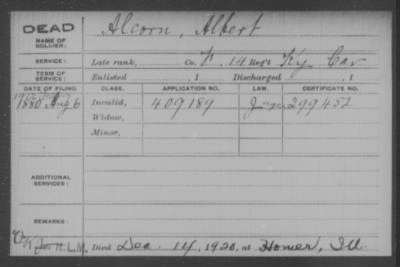 DEAD
NAME OF SOLDIER:
Alcorn, Albert
SERVICE:
Late rank, Co. F. 14 Reg't Ky Cav
TERM OF SERVICE:
Enlisted , 1 Discharged , 1
DATE OF FILING. CLASS. APPLICATION NO. LAW. CERTIFICATE NO.
1880 Aug 6 Invalid, 409189 299452
Widow,
Minor,
ADDITIONAL SERVICES:
REMARKS:
Died Dec. 14, 1920, at Homer, Ill.